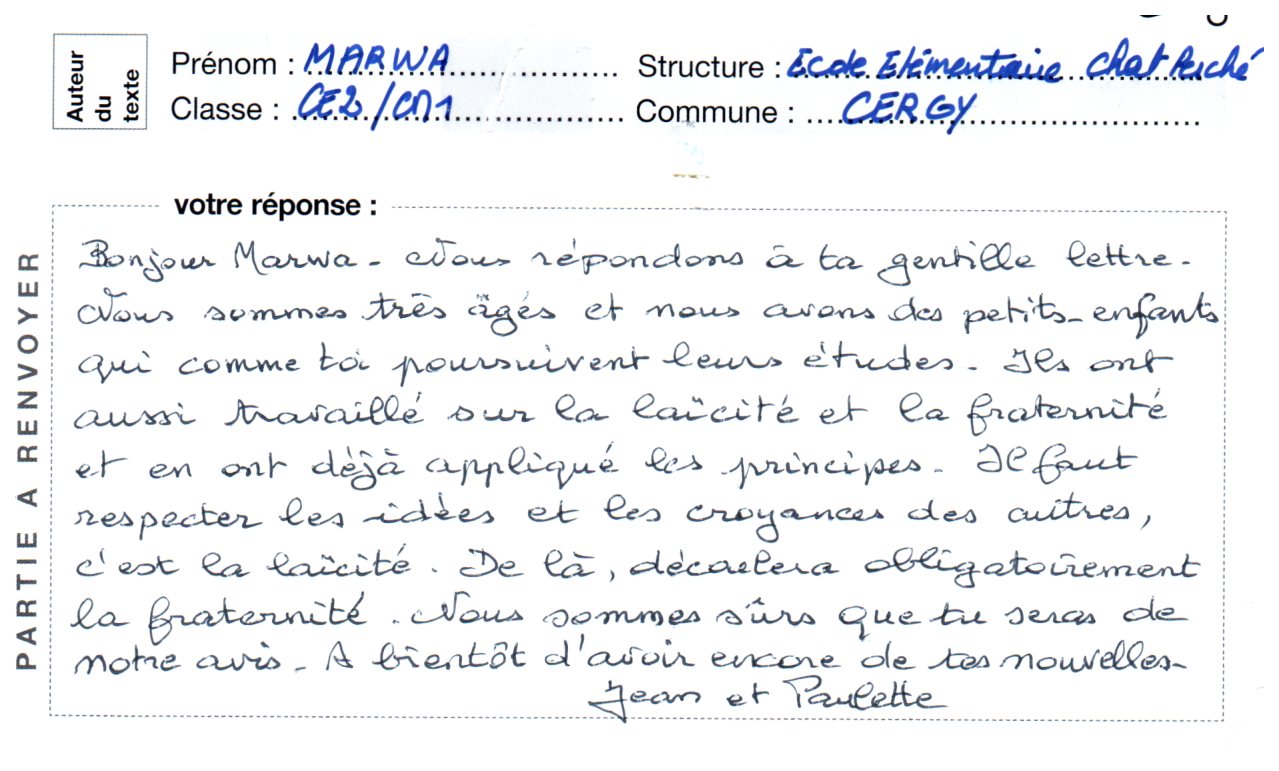 Auteur du texte
Prénom : MARWA
Structure : Ecole Elémentaire Chat Perché
Classe : CE2/CM1
Commune : CERGY
votre réponse :
PARTIE A RENVOYER
Bonjour Marwa - Nous répondons à ta gentille lettre.
Nous sommes très âgés et nous avons des petits-enfants
qui comme toi poursuivent leurs études. Ils ont
aussi travaillé sur la laïcité et la fraternité
et en ont déjà appliqué les principes. Il faut
respecter les idées et les croyances des autres,
c'est la laïcité. De là, découlera obligatoirement
la fraternité. Nous sommes sûrs que tu seras de
notre avis. A bientôt d'avoir encore de tes nouvelles-
Jean et Paulette